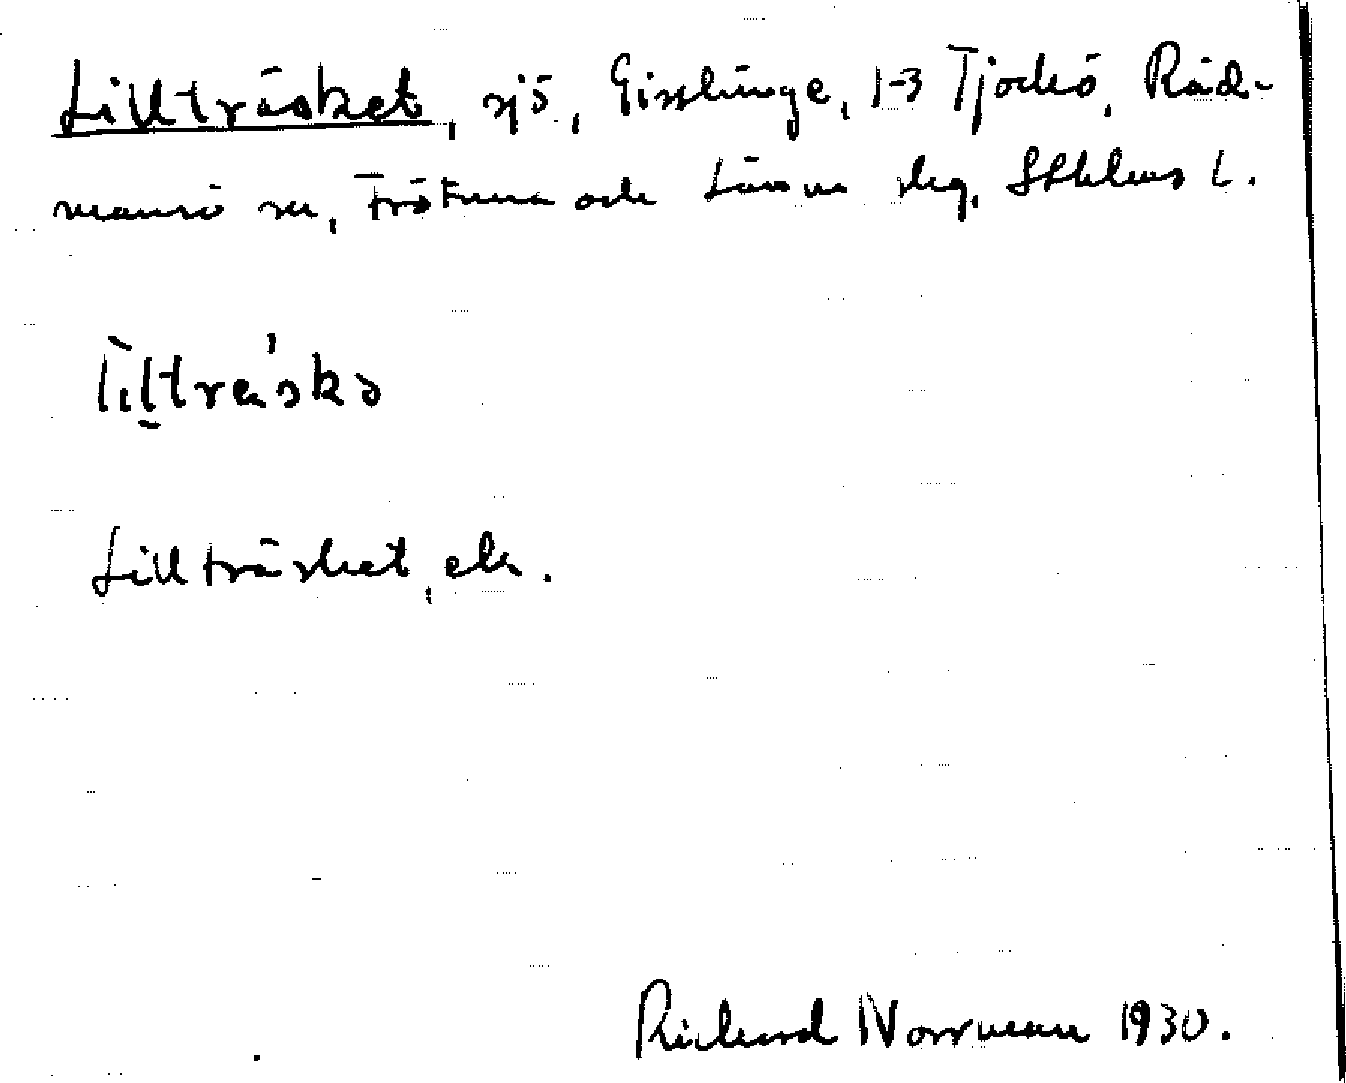 Lillträsket, sjö, Gisslinge, 1-3 Tjockö, Råd-
mansö sn, Frötuna och Länna skg, Sthlms l.
Lilltræ̀sko
Lillträsket, ek.
Richard Norrman 1930.